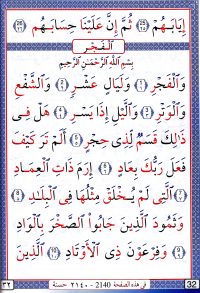 إِيَابَهُمْ ﴿٢٥﴾ ثُمَّ إِنَّ عَلَيْنَا حِسَابَهُم ﴿٢٦﴾
الْفَجْر
بِسْمِ اللَّهِ الرَّحْمَٰنِ الرَّحِيمِ
وَالْفَجْرِ ﴿١﴾ وَلَيَالٍ عَشْرٍ ﴿٢﴾ وَالشَّفْعِ
وَالْوَتْرِ ﴿٣﴾ وَالَّيْلِ إِذَا يَسْرِ ﴿٤﴾ هَلْ فِي
ذَٰلِكَ قَسَمٌ لِّذِي حِجْرٍ ﴿٥﴾ أَلَمْ تَرَ كَيْفَ
فَعَلَ رَبُّكَ بِعَادٍ ﴿٦﴾ إِرَمَ ذَاتِ الْعِمَادِ
﴿٧﴾ الَّتِي لَمْ يُخْلَقْ مِثْلُهَا فِي الْبِلَادِ ﴿٨﴾
وَثَمُودَ الَّذِينَ جَابُوا الصَّخْرَ بِالْوَادِ
﴿٩﴾ وَفِرْعَوْنَ ذِي الْأَوْتَادِ ﴿١٠﴾ الَّذِينَ
٣٢ في هذه الصفحة 2140 - ٢١٤٠ حسنة 32